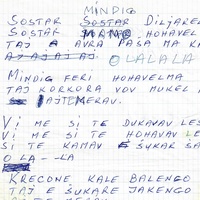 MINDIG
SOSTAR SOSTAR DILJAREL
SOSTAR HOHAVEL
TAJ AVRA PASA MA K
AJAJAJAJ OLALALA
MINDIG FERI HOHAVELMA
TAJ KORKORA VOV MUKEL
TAJTE MERAV.
VI ME SI TE DUKAVAV LES
VI ME SI TE HOHAVAV LE
SI TE KAMAV E SUKAR SA
O LA--LA
KRECONE KALE BALENGO
TAJ E SUKARE JAKENGO